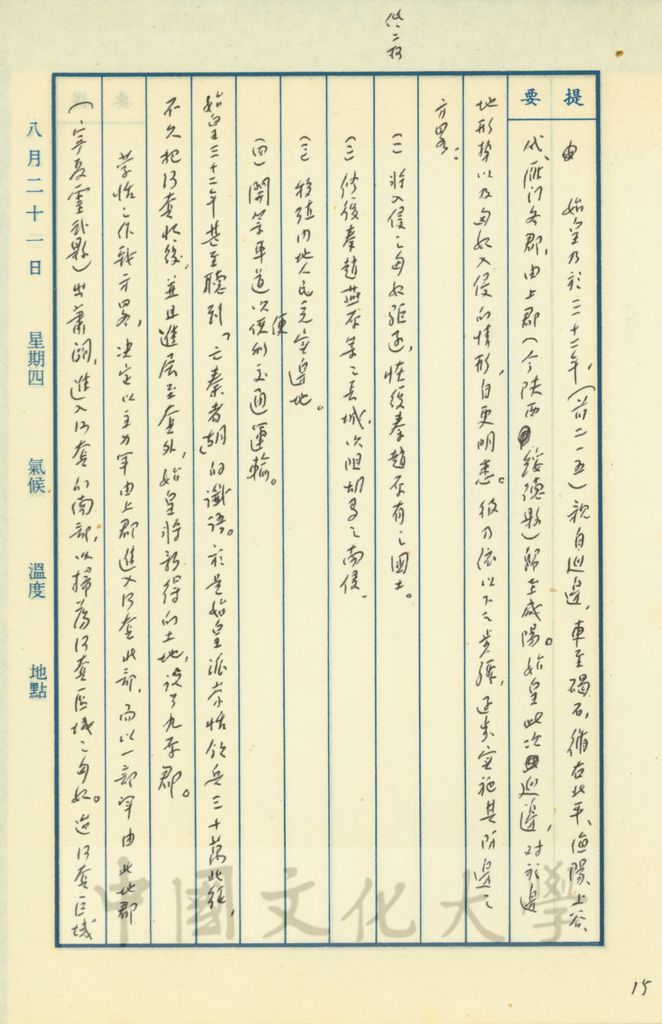 提要
始皇乃於三十二年,(前二一五)親自巡邊,車至碣石,循右北平、漁陽、上谷、
代、雁門各郡,由上郡(今陝西綏德縣)歸至咸陽。始皇此次巡邊,對於邊
地形勢以及匈奴入侵的情形,自更明悉。彼乃依以下之步驟,逐步實施其防邊之
方畧:
(一)將入侵之匈奴驅逐,恢復秦趙原有之國土。
(二)修復秦趙燕原築之長城,以阻胡馬之南侵。
(三)移殖內地人民充實邊地。
(四)開築車道以便利交通運輸。
便
始皇三十二年甚至聽到「亡秦者胡」的讖語。於是始皇派蒙恬領兵三十萬北征,
不久把河套收復,並且進展至套外,始皇將新得的土地,設了九原郡。
蒙恬之作戰方畧,決定以主力軍由上郡進入河套北部,而以一部軍由北地郡
(寧夏靈武縣)出蕭關,進入河套的南部,以掃蕩河套區域之匈奴。迨河套區域
八月二十一日 星期四 氣候 溫度 地點
中國文化大學
15